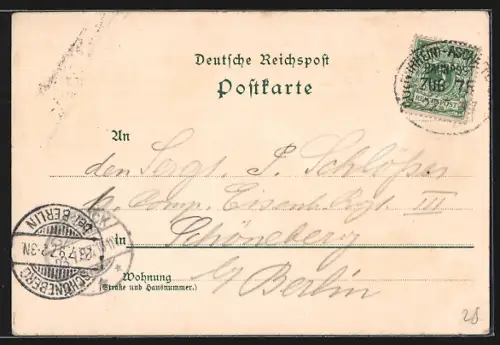 Deutsche Reichspost
Postkarte
An
den Sergt. P. Schlößer
Comp. Eisenb. Rgt. III
in Schöneberg
b/ Berlin
Wohnung
(Straße und Hausnummer.)
ZUG
SCHÖNEBERG
BEI BERLIN
28